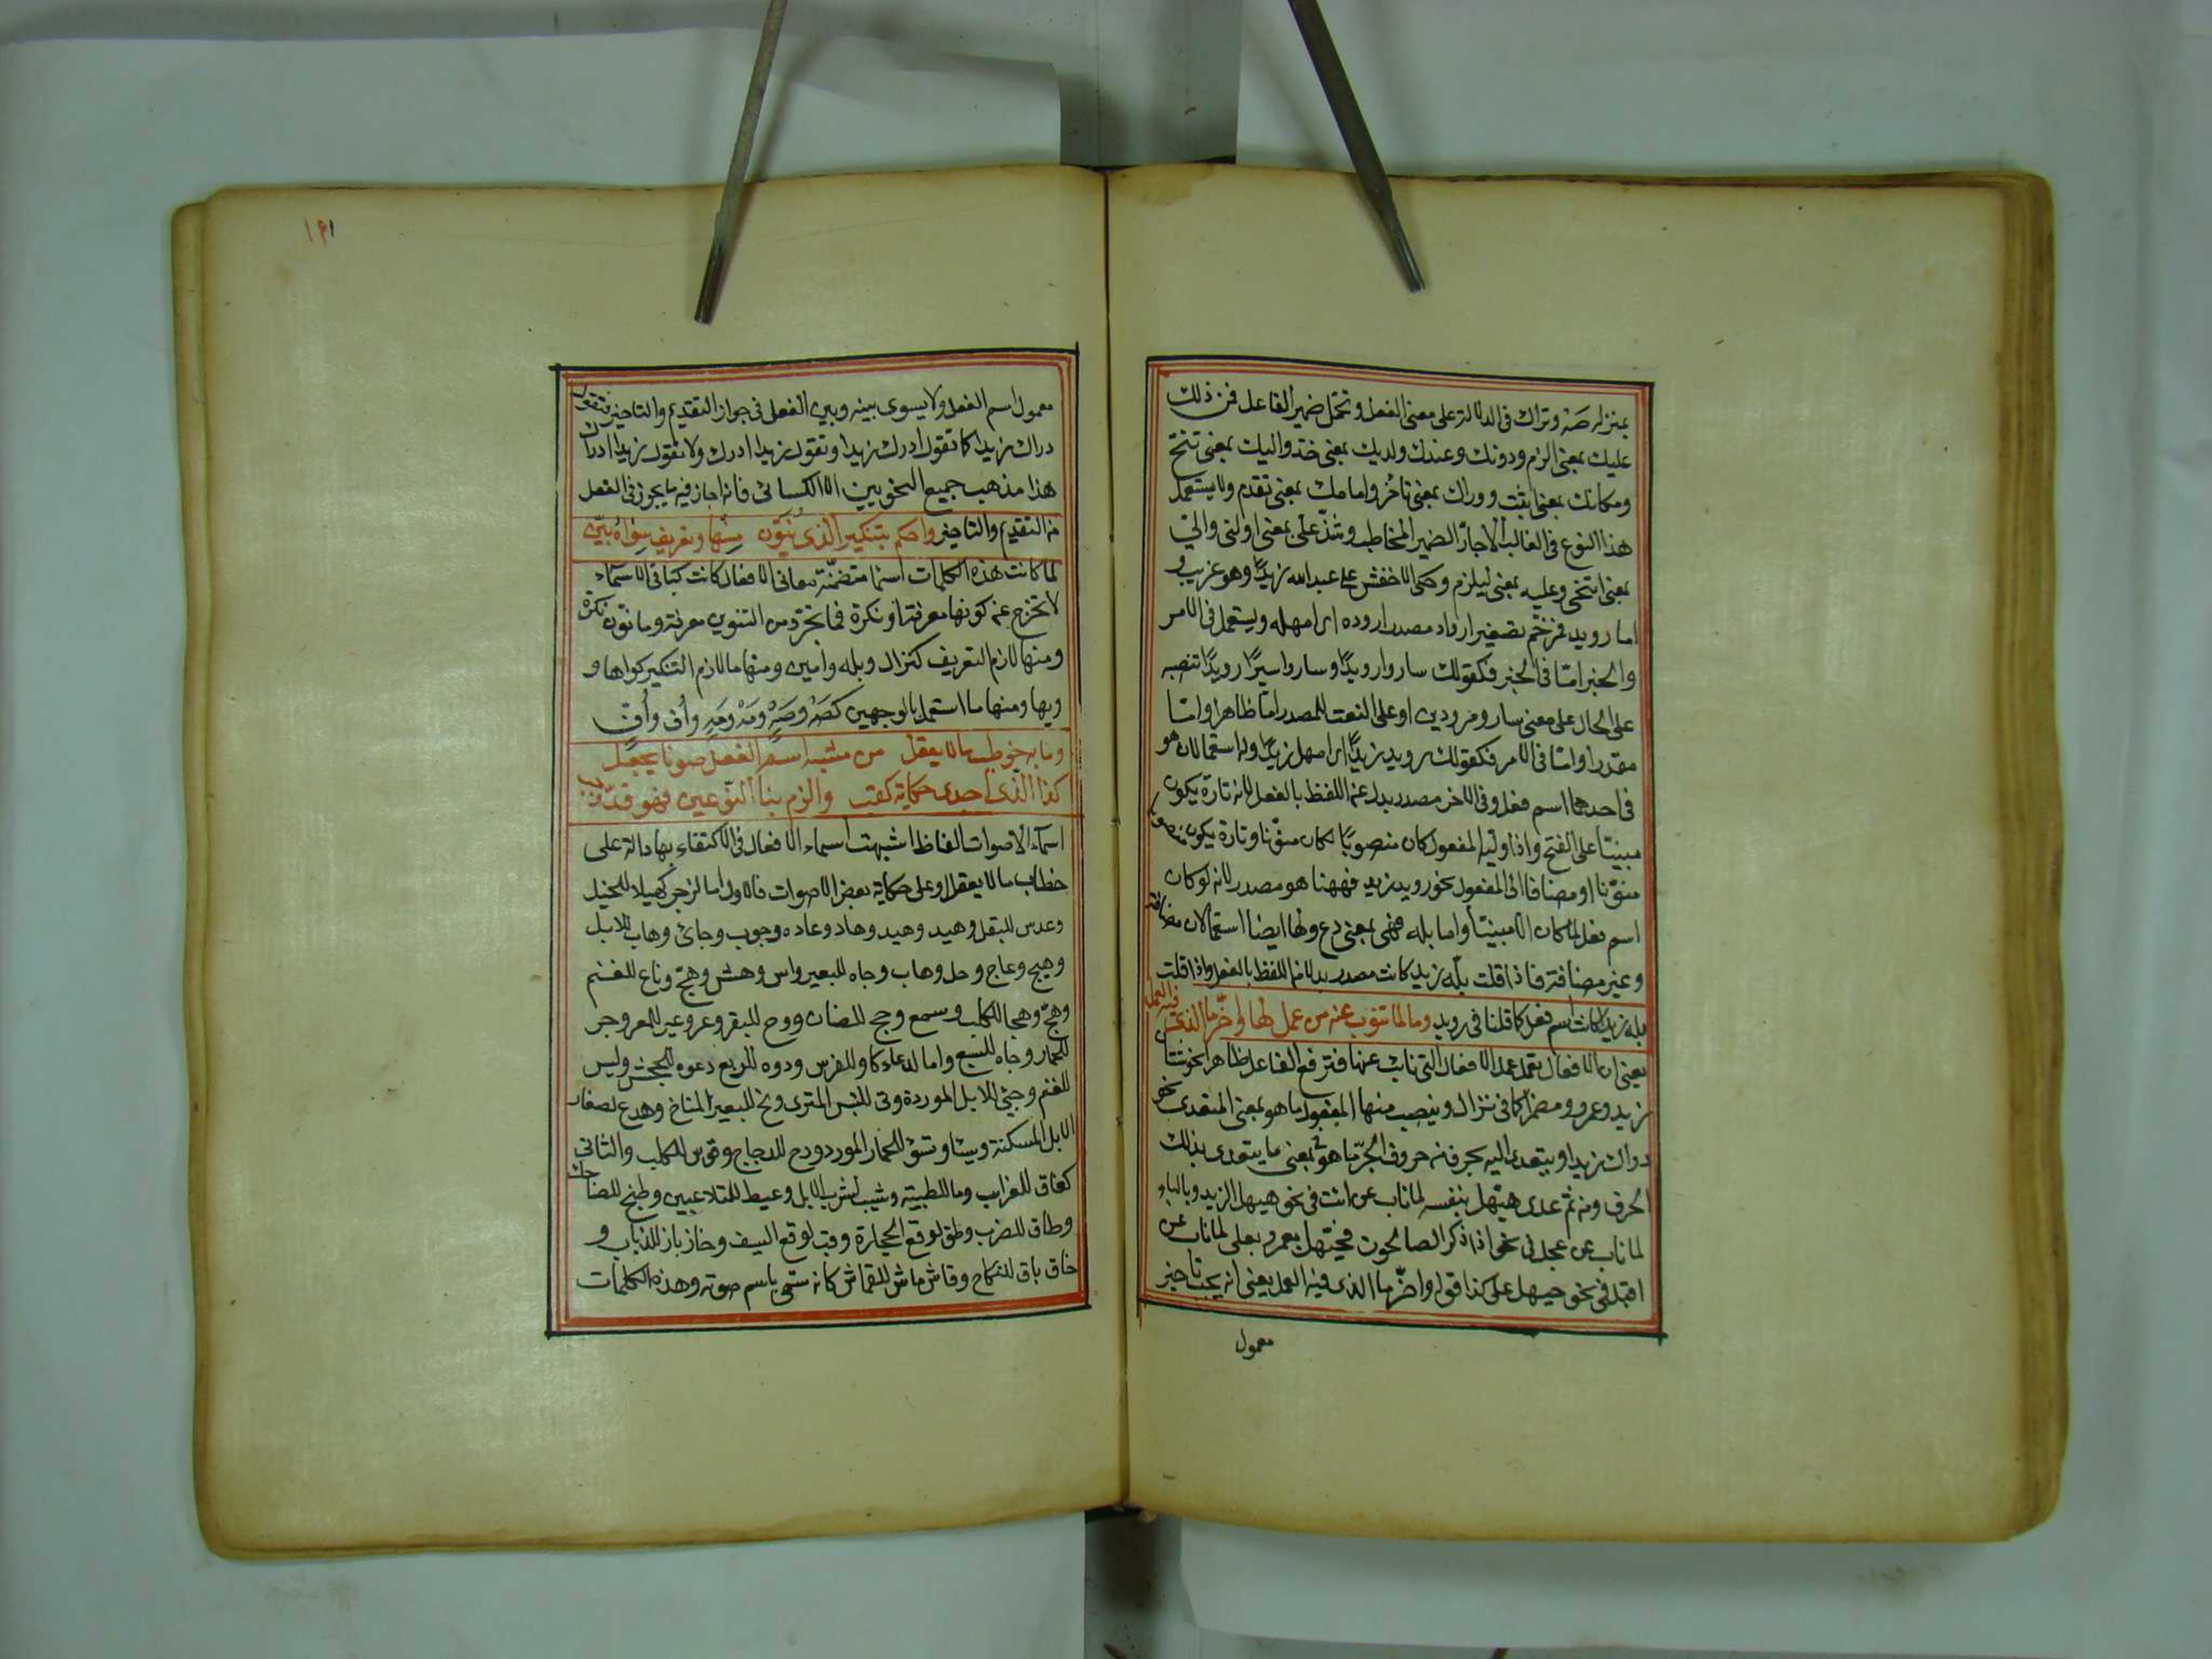 بمنزله صَهْ وتراك فى الدلالة على معنى الفعل وتحمّل ضمير الفاعل فمن ذلك
عليك بمعنى الزم ودونك وعندك ولديك بمعنى خذ واليك بمعنى تنحّ
ومكانك بمعنى اثبت ووراك بمعنى تاخّر وامامك بمعنى تقدم ولا يستعمل
هذا النوع فى الغالب الا جارّ الضمير المخاطب وشذّ علىّ بمعنى اولنى والىّ
بمعنى اتنحى وعليه بمعنى ليلزم وحكى الاخفش على عبد الله زيدًا وهو غريب و
اما رويد فمرخّم تصغير ارواد مصدر اروده اى امهله ويستعمل فى الامر
والخبر امّا فى الخبر فكقولك ساروا رويدًا وساروا سيرًا رويدًا تنصبه
على الحال على معنى ساروا مرودين او على النعت للمصدر امّا ظاهرا وامّا
مقدرا وامّا فى الامر فكقولك رويد زيدًا اى امهل زيدًا وله استعمالان هو
فى احدهما اسم فعل وفى الاخر مصدر بدل عن اللفظ بالفعل لانه تارة يكون
مبنيّا على الفتح واذا وليه المفعول كان منصوبًا كان منوّنا وتارة يكون منصوبا
منوّنا او مضافا الى المفعول نحو رويد زيد فههنا هو مصدر لانه لو كان
اسم فعل لما كان الا مبنيّا واما بله فهى بمعنى دع ولها ايضا استعمالان مضافة
وغير مضافة فاذا قلت بله زيد كانت مصدر بدلا من اللفظ بالفعل واذا قلت
بله زيدا كانت اسم فعل كما قلنا فى رويد وما لما تنوب عنه من عمل لها واخّر ما الذى فيه العمل
يعنى ان الافعال تعمل عمل الافعال التى نابت عنها فترفع الفاعل ظاهرا نحو شتا
زيد وعمرو ومضمرا كما فى نزال وينصب منها المفعول ما هو بمعنى المتعدى نحو
دراك زيدا ويتعدى اليه بحرف من حروف الجرّ ما هو بمعنى ما يتعدى بذلك
الحرف ومن ثم عدى حيّهل بنفسه لما ناب عن ائت فى نحو حيهل الثريد وبالباء
لما ناب عن عجل فى نحو اذا ذكر الصالحون فحيّهل بعمر وبعلى لما ناب عن
اقبل فى نحو حيهل على كذا قوله واخّر ما الذى فيه العمل يعنى انه يجب تاخير
معمول
۱۶۱
معمول اسم الفعل ولا يسوى بينه وبين الفعل فى جواز التقديم والتاخير فتقول
دراك زيدا كما تقول ادرك زيدا وتقول زيدا ادرك ولا تقول زيدا دراك
هذا مذهب جميع النحويين الا الكسائى فانه اجاز فيه ما يجوز فى الفعل
من التقديم والتاخير واحكم بتنكير الذى يُنَوَّن منها وتعريف سواه بيّن
لما كانت هذه الكلمات اسما متضمّنة معانى الافعال كانت كباقى الاسماء
لا تخرج عن كونها معرفة او نكرة فما تجرّد من التنوين معرفة وما نوّن نكرة
ومنها لازم التعريف كنزال وبله وآمين ومنها ما لازم التنكير كواها و
ويها ومنها ما استعمل بالوجهين كصَهْ وصَهٍ ومَهْ ومَهٍ واُف واُفٍّ
وما به خوطب ما لا يعقل من مشبه اسم الفعل صوتا يجعل
كذا الذى اجدى حكاية كقب والزم بنا النّوعين فهو قد وجب
اسماء الاصوات الفاظ اشبهت اسماء الافعال فى الاكتفاء بها دالة على
خطاب ما لا يعقل او على حكاية بعض الاصوات فالاول اما لزجر كهلا للخيل
وعدس للبغل وهيد وهيد وهاد وعاده وجوب وجائ وهاب للابل
وهيج وعاج وحل وهاب وجاه للبعير واس وهش وهجّ وناع للغنم
وهجّ وهجا للكلب وسمع وجح للضان ووح للبقر وعز وعيز للمعز وحر
للحمار وجاه للسبع واما لدعاء كاو للفرس ودوه للربع وعوه للجحش وبس
للغنم وجئ للابل الموردة وتئ للتيس المنزى ونخ للبعير المناخ وهدع لصغار
الابل المسكنة وسا وتشؤ للحمار المورد ودج للدجاج وقوس للكلب والثانى
كغاق للغراب وما للظبية وشيب لشرب الابل وعيط للمتلاعبين وطيخ للضاحك
وطاق للضرب وطق لوقع الحجارة وقب لوقع السيف وخاز باز للذباب و
خاق باق للنكاح وقاش ماش للقماش كانه سمّى باسم صوته وهذه الكلمات